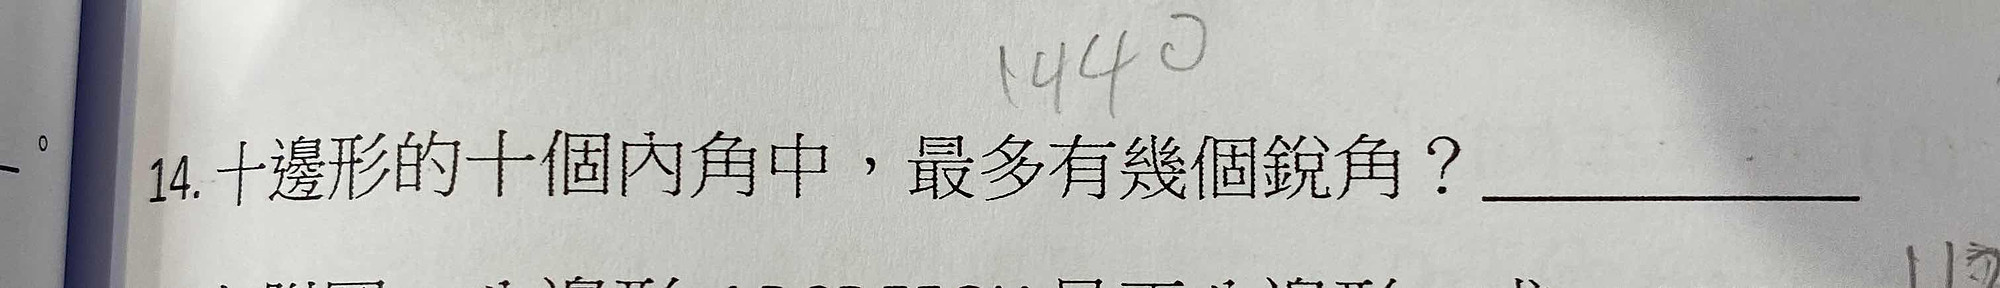 1440
14. 十邊形的十個內角中，最多有幾個銳角？